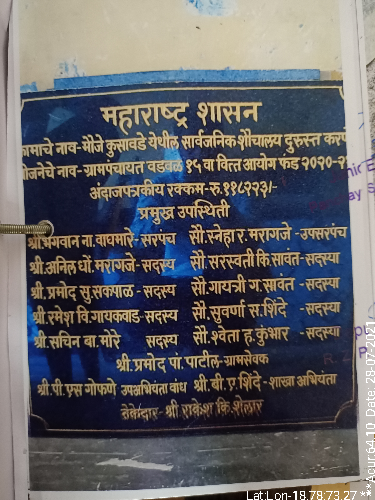 महाराष्ट्र शासन
कामाचे नाव-मौजे कुसावडे येथील सार्वजनिक शौचालय दुरुस्त करणे
योजनेचे नाव-ग्रामपंचायत वडवळ १५ वा वित्त आयोग फंड २०२०-२१
अंदाजपत्रकीय रक्कम-रु.११८२२३/-
प्रमुख उपस्थिती
श्री.भगवान ना.वाघमारे-सरपंच सौ.स्नेहा र.मरागजे-उपसरपंच
श्री.अनिल धों.मरागजे-सदस्य सौ.सरस्वती कि.सावंत-सदस्या
श्री.प्रमोद सु.सकपाळ-सदस्य सौ.गायत्री ग.सावंत-सदस्या
श्री.रमेश वि.गायकवाड-सदस्य सौ.सुवर्णा स.शिंदे -सदस्या
श्री.सचिन बा.मोरे सदस्य सौ.श्वेता ह.कुंभार -सदस्या
श्री.प्रमोद पां.पाटील-ग्रामसेवक
श्री.पी.एस गोफणे उपअभियंता बांध श्री.बी.ए.शिंदे-शाखा अभियंता
ठेकेदार-श्री राकेश कि.शेलार
Lat:Lon-18.78:73.27 ***Acur:64.10, Date: 28-07-2021